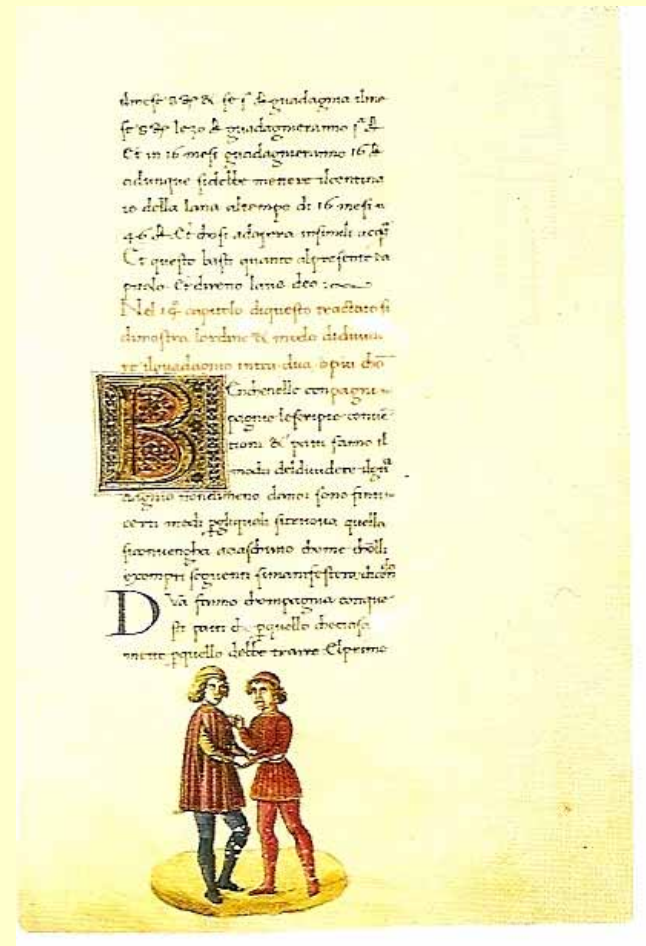 guadagnia
guadagneranno
Et in 16 mesi guadagneranno 16
adunque si debbe mettere il centina
io della lana al tempo di 16 mesi
46 Et chosi adopera insimili
Et questo basti quanto al presente ca
pitolo Et direno laus deo
Nel capitolo di questo tractato si
dimostra lordine & modo di divide
re il guadagnio intra dua o piu
B Enche nelle conpagni
pagnie le scripte conve
tioni & patti fanno il
modo del dividere
dagnio nondimeno danoi sono
certi modi pgliquali sitruova quello
siconvengha aciaschuno chome
exempri seguenti simanifestera
D Va fanno chompagnia conque
sti patti che pquello
mette pquello debbe trarre El primo